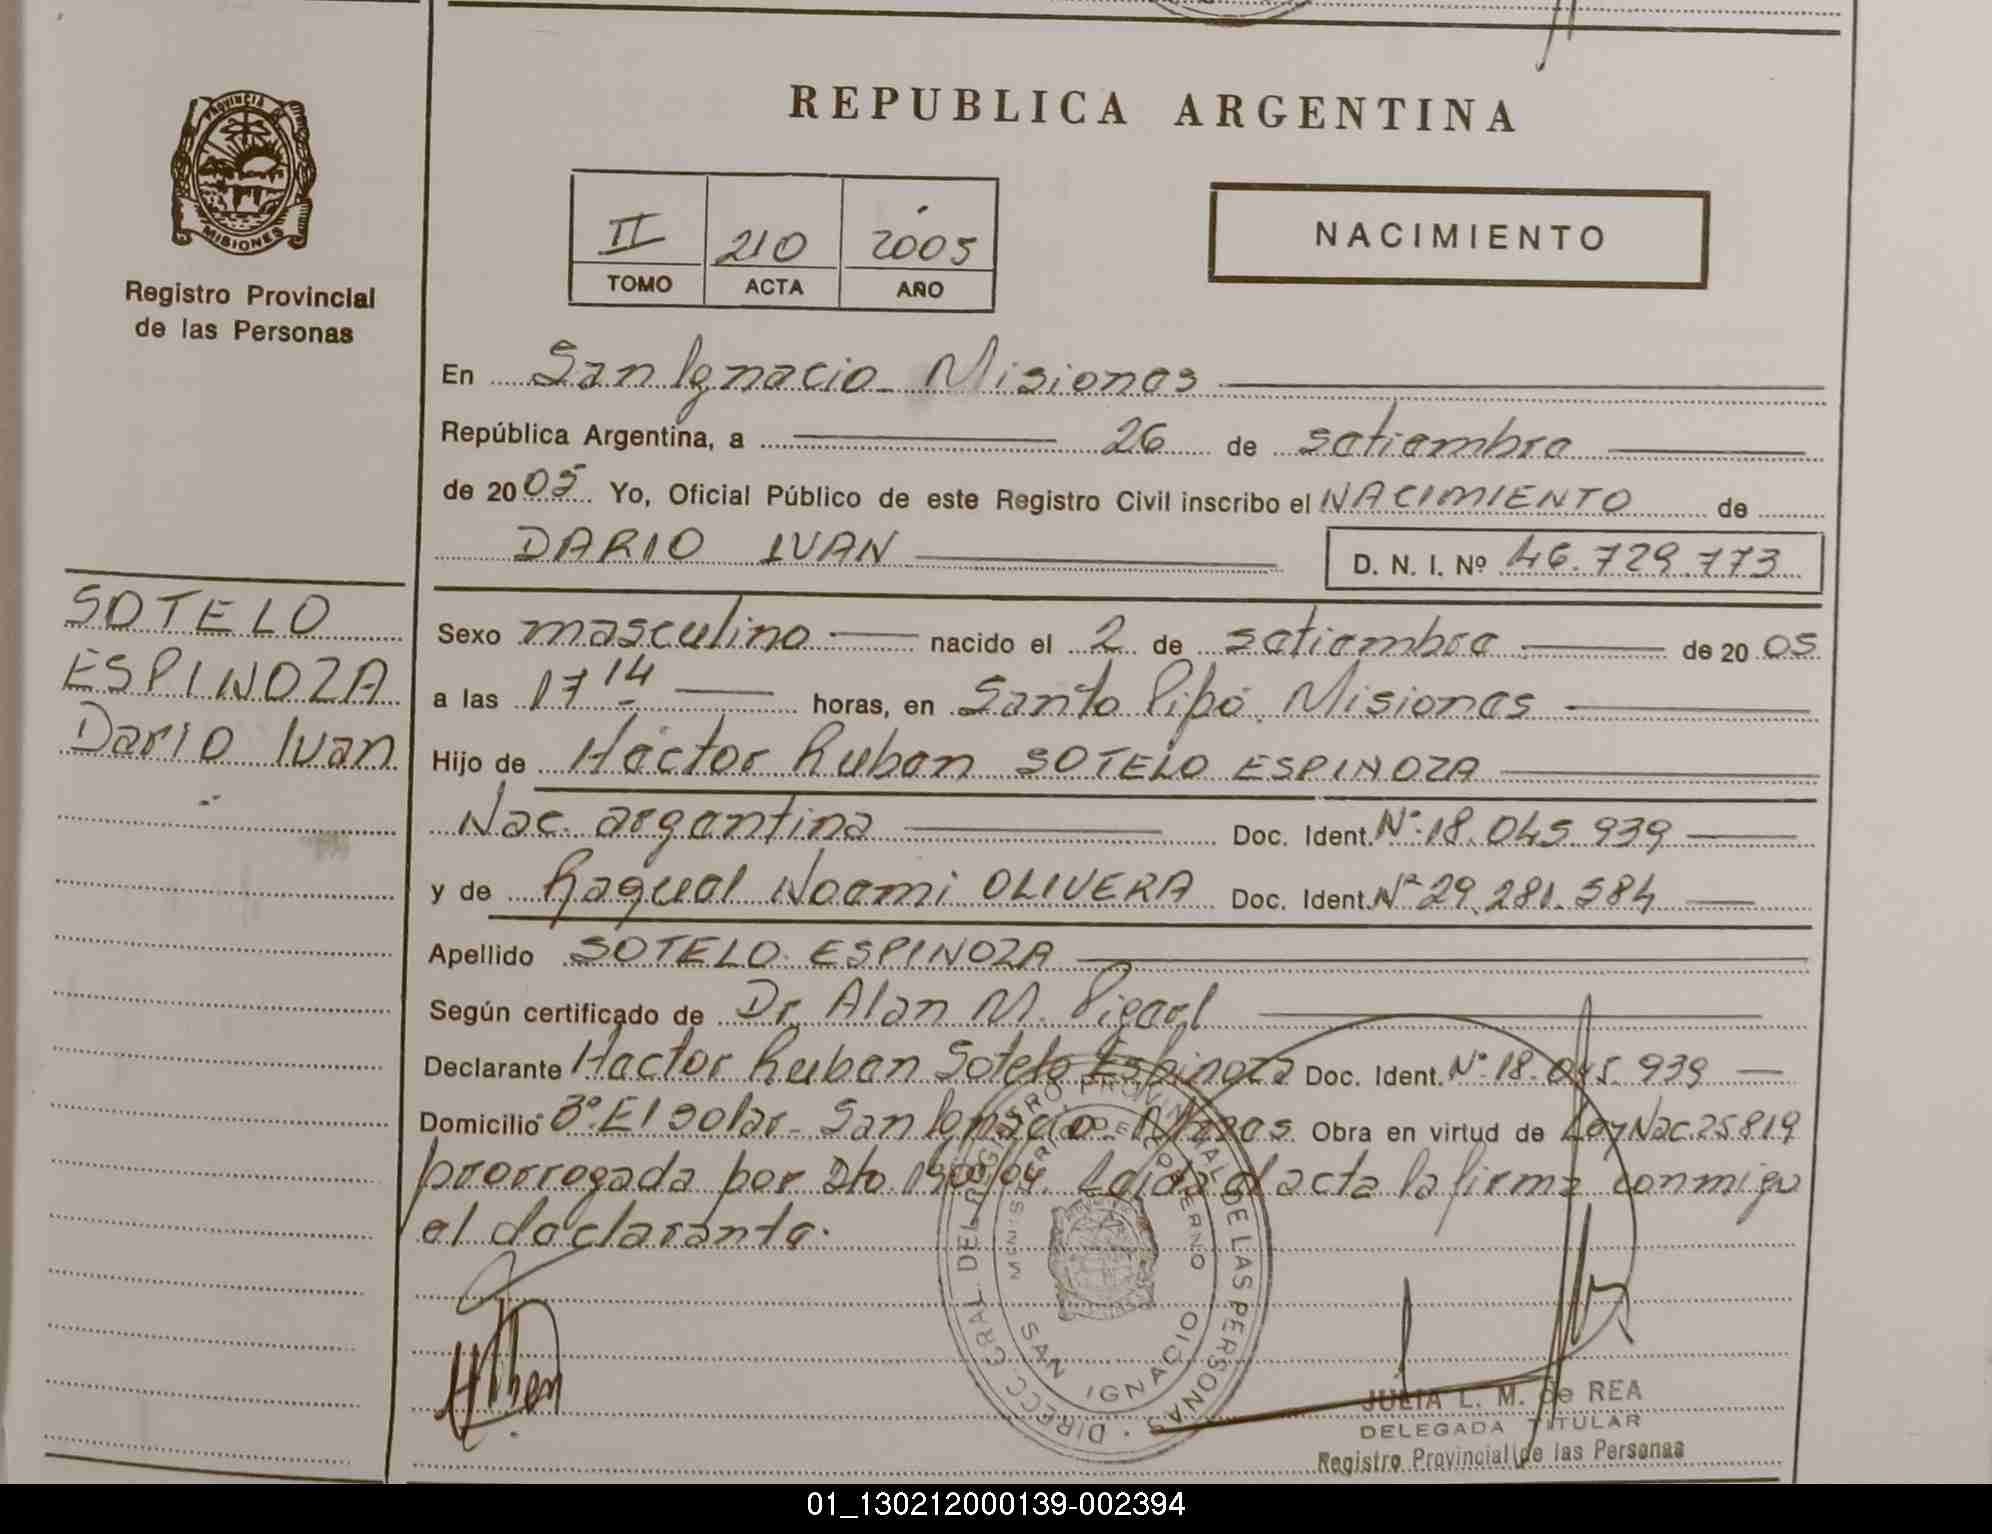 PROVINCIA
MISIONES
Registro Provincial
de las Personas
REPUBLICA ARGENTINA
II 210 2005
TOMO ACTA AÑO
NACIMIENTO
En San Ignacio Misiones
República Argentina, a 26 de setiembre
de 2005 Yo, Oficial Público de este Registro Civil inscribo el NACIMIENTO de
DARIO IVAN D. N. I. Nº 46.729.773
SOTELO
ESPINOZA
Dario Ivan
Sexo masculino nacido el 2 de setiembre de 2005
a las 17 14 horas, en Santo Pipó, Misiones
Hijo de Héctor Ruben SOTELO ESPINOZA
Nac. argentina Doc. Ident. Nº 18.045.939
y de Raquel Noemi OLIVERA Doc. Ident. Nº 29.281.584
Apellido SOTELO ESPINOZA
Según certificado de Dr Alan M.
Declarante Hector Ruben Sotelo Espinoza Doc. Ident. Nº 18.045.939
Domicilio Bº El solar - San Ignacio. Mnes. Obra en virtud de Ley Nac. 25819
prorrogada por Dto. Leida el acta la firma conmigo
el declarante.
DIRECC. GRAL. DEL REGISTRO PROVINCIAL DE LAS PERSONAS
MINISTERIO DE GOBIERNO
SAN IGNACIO
JULIA L. M. de REA
DELEGADA TITULAR
Registro Provincial de las Personas
01_130212000139-002394